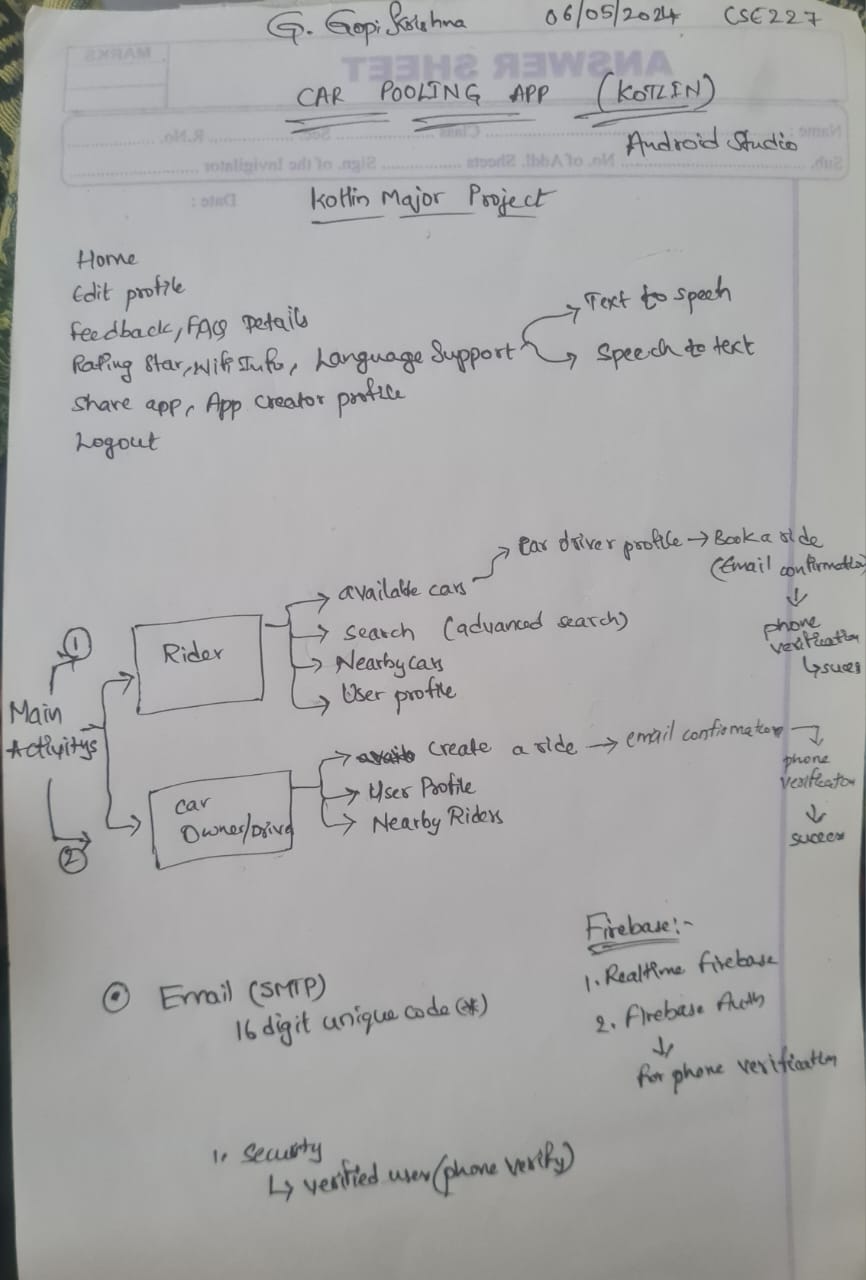 G. Gopi Krishna 06/05/2024 CSE227
MARKS
ANSWER SHEET
CAR POOLING APP (KOTLIN)
Name: Class Sec R.No.
Android Studio
Sub. No. of Addl. Sheets Sign. of the Invigilator
Kotlin Major Project
Date :
Home
Edit profile
Feedback, FAQ Details
Rating Star, Wifi Info, Language Support
Text to speech
Speech to text
Share app, App creator profile
Logout
Main Activitys
1
Rider
available cars
Car driver profile → Book a ride
(Email confirmation)
phone
verification
↳ sucess
search (advanced search)
Nearby cars
User profile
2
Car
Owner/Drive
Create a ride → email confirmation
phone
verification
success
User Profile
Nearby Riders
Firebase:-
1. Realtime firebase
2. Firebase Auth
for phone verification
Email (SMTP)
16 digit unique code (*)
1. Security
↳ verified user (phone verify)